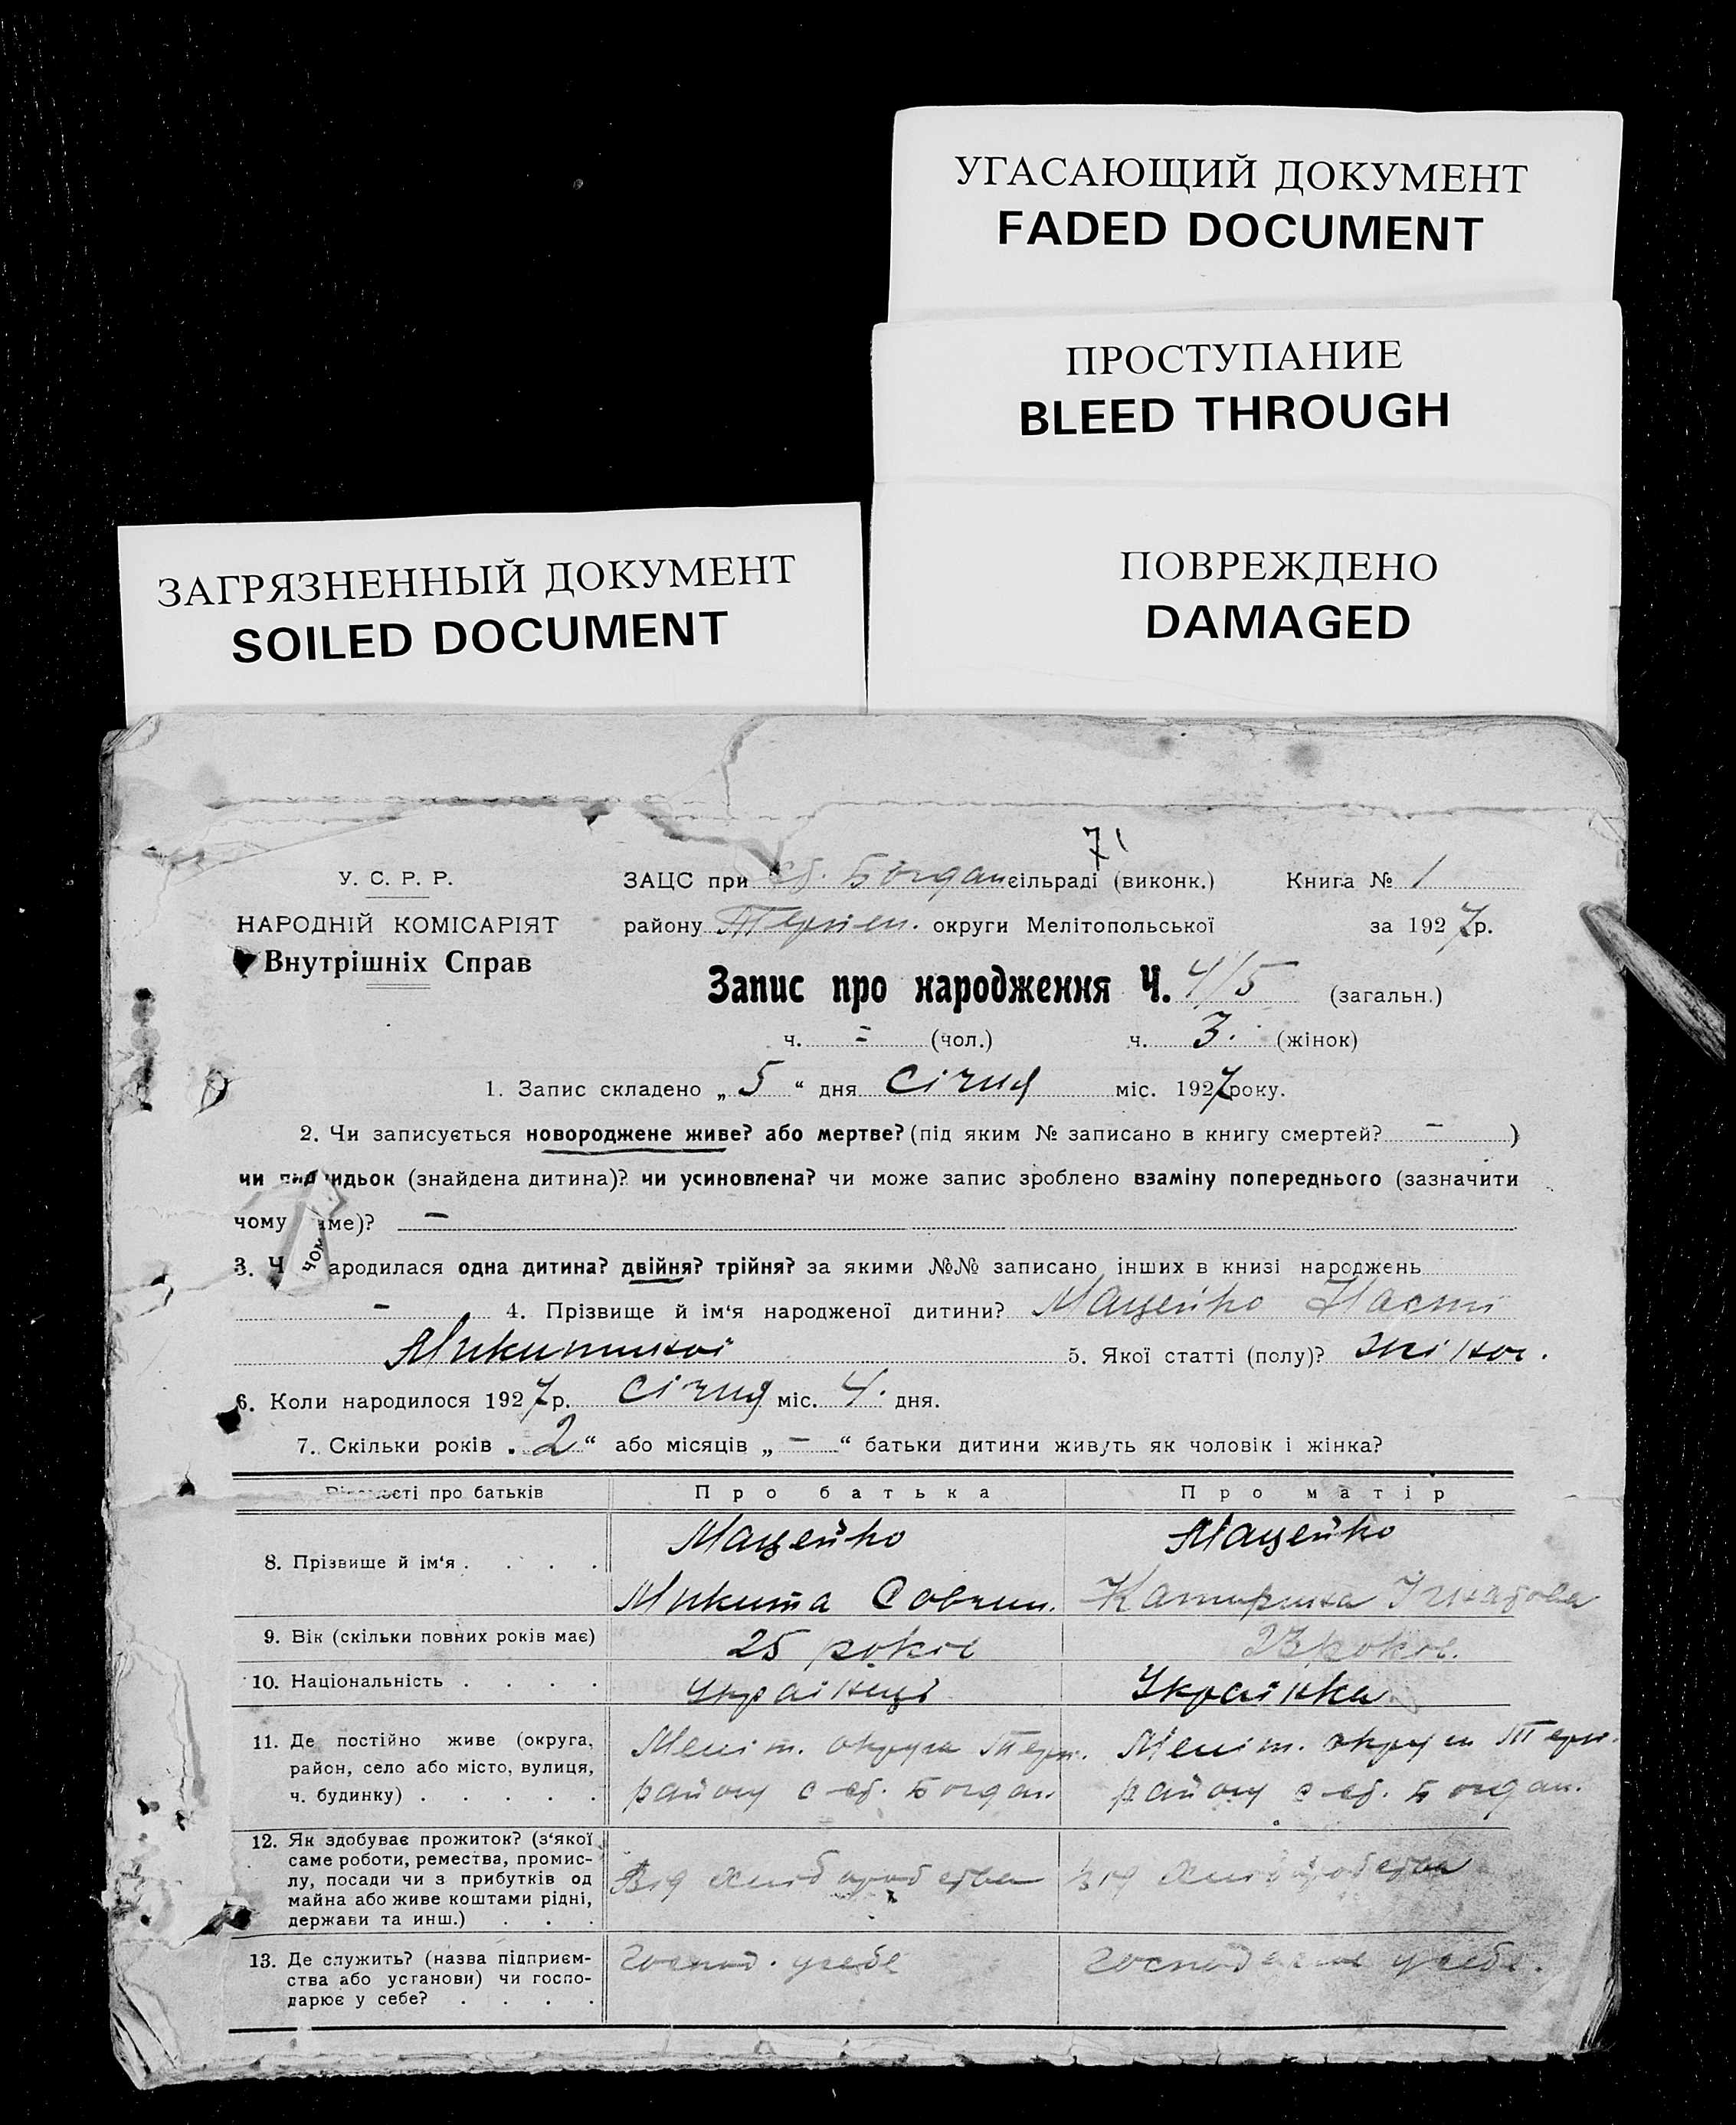 УГАСАЮЩИЙ ДОКУМЕНТ
FADED DOCUMENT
ПРОСТУПАНИЕ
BLEED THROUGH
ПОВРЕЖДЕНО
DAMAGED
ЗАГРЯЗНЕННЫЙ ДОКУМЕНТ
SOILED DOCUMENT
71
У. С. Р. Р.
НАРОДНІЙ КОМІСАРІЯТ
Внутрішніх Справ
ЗАЦС при Богдан сільраді (виконк.) Книга № 1
району округи Мелітопольської за 1927 р.
Запис про народження Ч. 4/5 (загальн.)
ч. - (чол.) ч. 3. (жінок)
1. Запис складено „ 5 “ дня Січня міс. 1927 року.
2. Чи записується новороджене живе? або мертве? (під яким № записано в книгу смертей? - )
чи идьок (знайдена дитина)? чи усиновлена? чи може запис зроблено взаміну попереднього (зазначити
чому аме)? -
3. Ч ародилася одна дитина? двійня? трійня? за якими №№ записано інших в книзі народжень
- 4. Прізвище й ім‘я народженої дитини? Мацейко
5. Якої статті (полу)? жіноч.
6. Коли народилося 1927 р. Січня міс. 4. дня.
7. Скільки років „ 2 “ або місяців „ - “ батьки дитини живуть як чоловік і жінка?
ості про батьків
Про батька
Про матір
8. Прізвище й ім‘я . . . .
Мацейко
Микита
Мацейко
9. Вік (скільки повних років має)
25 років
23 років.
10. Національність . . . .
Українці
Українка
11. Де постійно живе (округа,
район, село або місто, вулиця,
ч. будинку) . . . . .
Меліт. округа
району с Богдан.
Меліт. округи
району с Богдан.
12. Як здобуває прожиток? (з‘якої
саме роботи, ремества, промис-
лу, посади чи з прибутків од
майна або живе коштами рідні,
держави та инш.) . . .
Від
Від
13. Де служить? (назва підприєм-
ства або установи) чи госпо-
дарює у себе? . . . .
Господ. у себе
у себе.